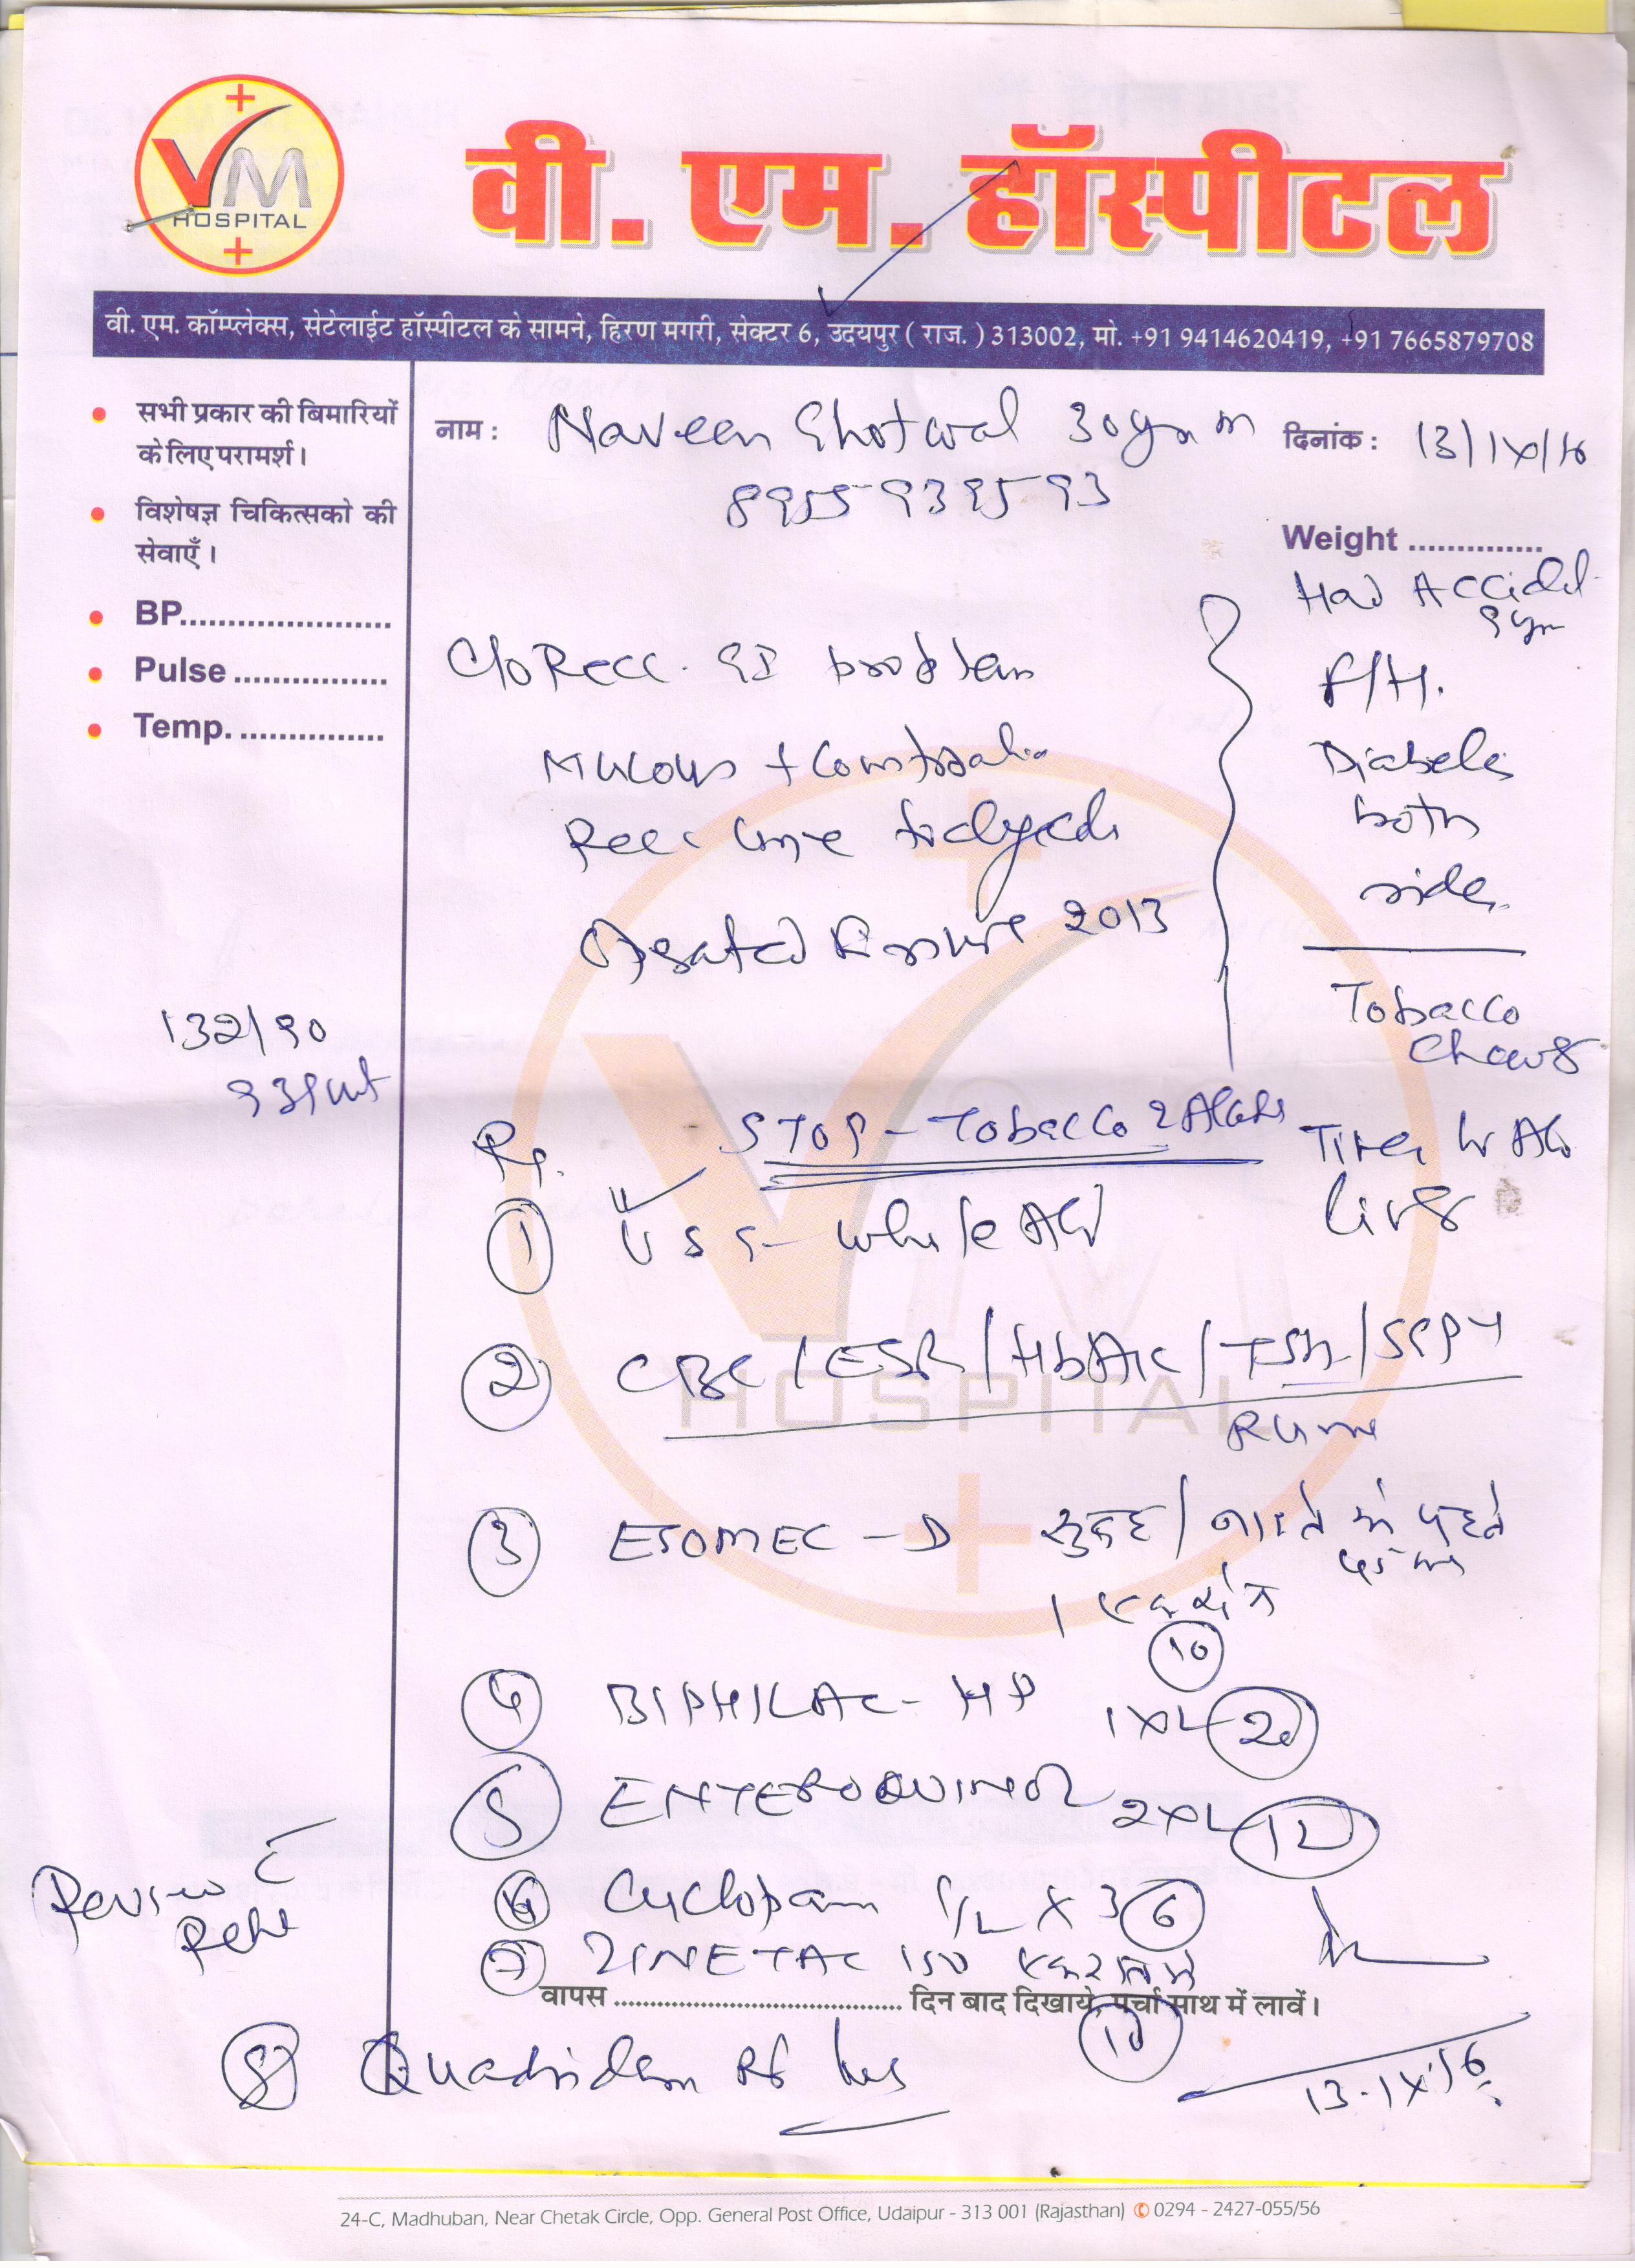 VM
HOSPITAL
वी. एम. हॉस्पीटल
वी. एम. कॉम्प्लेक्स, सेटेलाईट हॉस्पीटल के सामने, हिरण मगरी, सेक्टर 6, उदयपुर ( राज. ) 313002, मो. +91 9414620419, +91 7665879708
सभी प्रकार की बिमारियों
के लिए परामर्श।
विशेषज्ञ चिकित्सको की
सेवाएँ।
BP......................
Pulse ................
Temp. ...............
132/90
नाम : Naveen 30 yrs m
8955939593
दिनांक : 13/IX/16
Weight ..............
Had Accident
9 yrs
F/H.
Diabetes
both
side
Tobacco
Chewer
C/o Recc. GI problem
Mucous + Constipation
Operated 2013
Rx. STOP - Tobacco
① USG - whole Abd
Liver
② CBC / ESR / HbA1c / TSH / SGPT
Urine
③ ESOMEC - D सुबह / नाश्ते से पहले
1 एक रोज
10
④ BIPHILAC - HP 1 X 2 20
⑤ ENTEROQUINOL 2 X 2 12
⑥ Cyclopam 1/2 X 3 6
⑦ ZINETAC 150 एक रात में
10
Review c
वापस ........................................ दिन बाद दिखाये, पर्चा साथ में लावें।
⑧ Quadriderm Rf
13-IX-16
VM
HOSPITAL
24-C, Madhuban, Near Chetak Circle, Opp. General Post Office, Udaipur - 313 001 (Rajasthan) ✆ 0294 - 2427-055/56